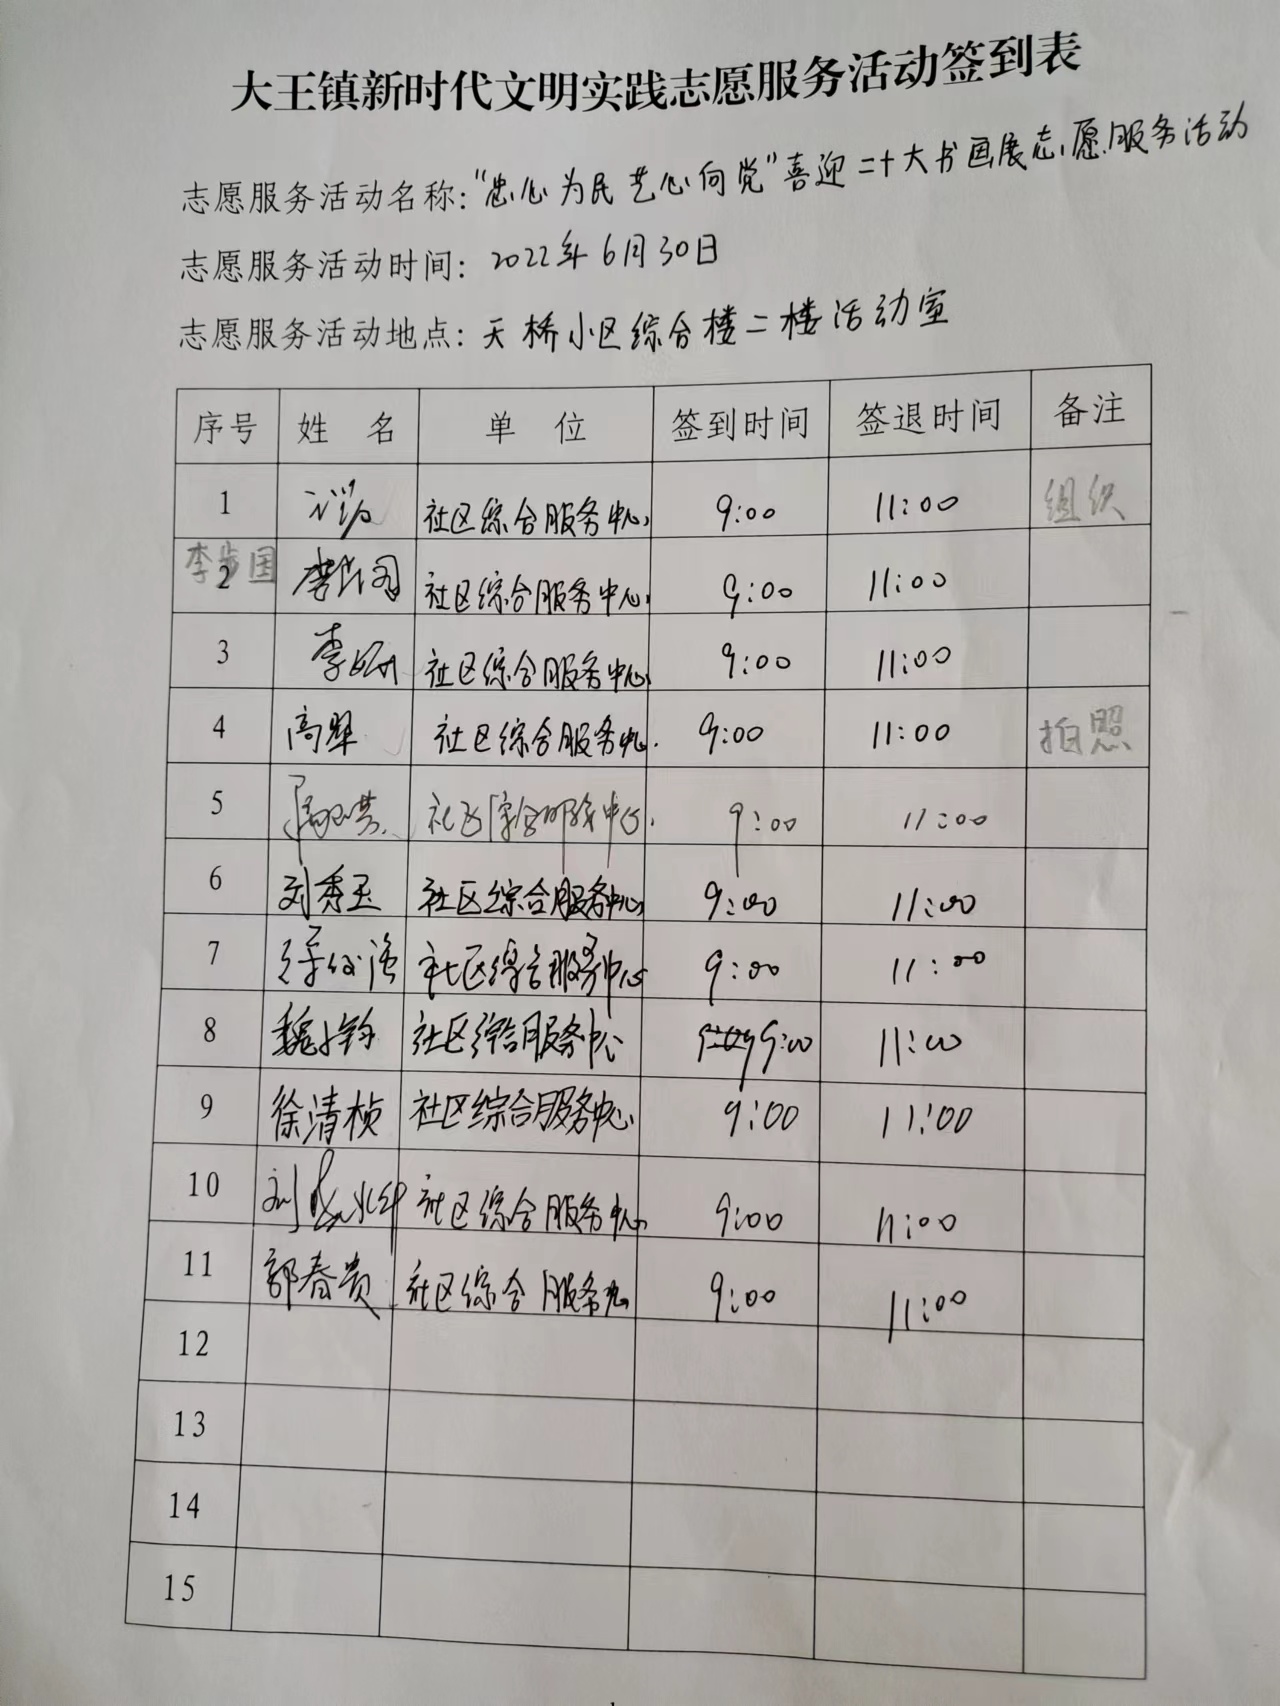 大王镇新时代文明实践志愿服务活动签到表
志愿服务活动名称："忠心为民 艺心向党"喜迎二十大书画展志愿服务活动
志愿服务活动时间：2022年6月30日
志愿服务活动地点：天桥小区综合楼二楼活动室
序号 姓 名 单 位 签到时间 签退时间 备注
1 社区综合服务中心 9:00 11:00 组织
李步国
2 李步国 社区综合服务中心 9:00 11:00
3 李 社区综合服务中心 9:00 11:00
4 高翠 社区综合服务中心 9:00 11:00 拍照
5 社区综合服务中心 9:00 11:00
6 刘秀玉 社区综合服务中心 9:00 11:00
7 社区综合服务中心 9:00 11:00
8 魏 社区综合服务中心 9:00 11:00
9 徐清桢 社区综合服务中心 9:00 11:00
10 刘 社区综合服务中心 9:00 11:00
11 郭春贵 社区综合服务中心 9:00 11:00
12
13
14
15